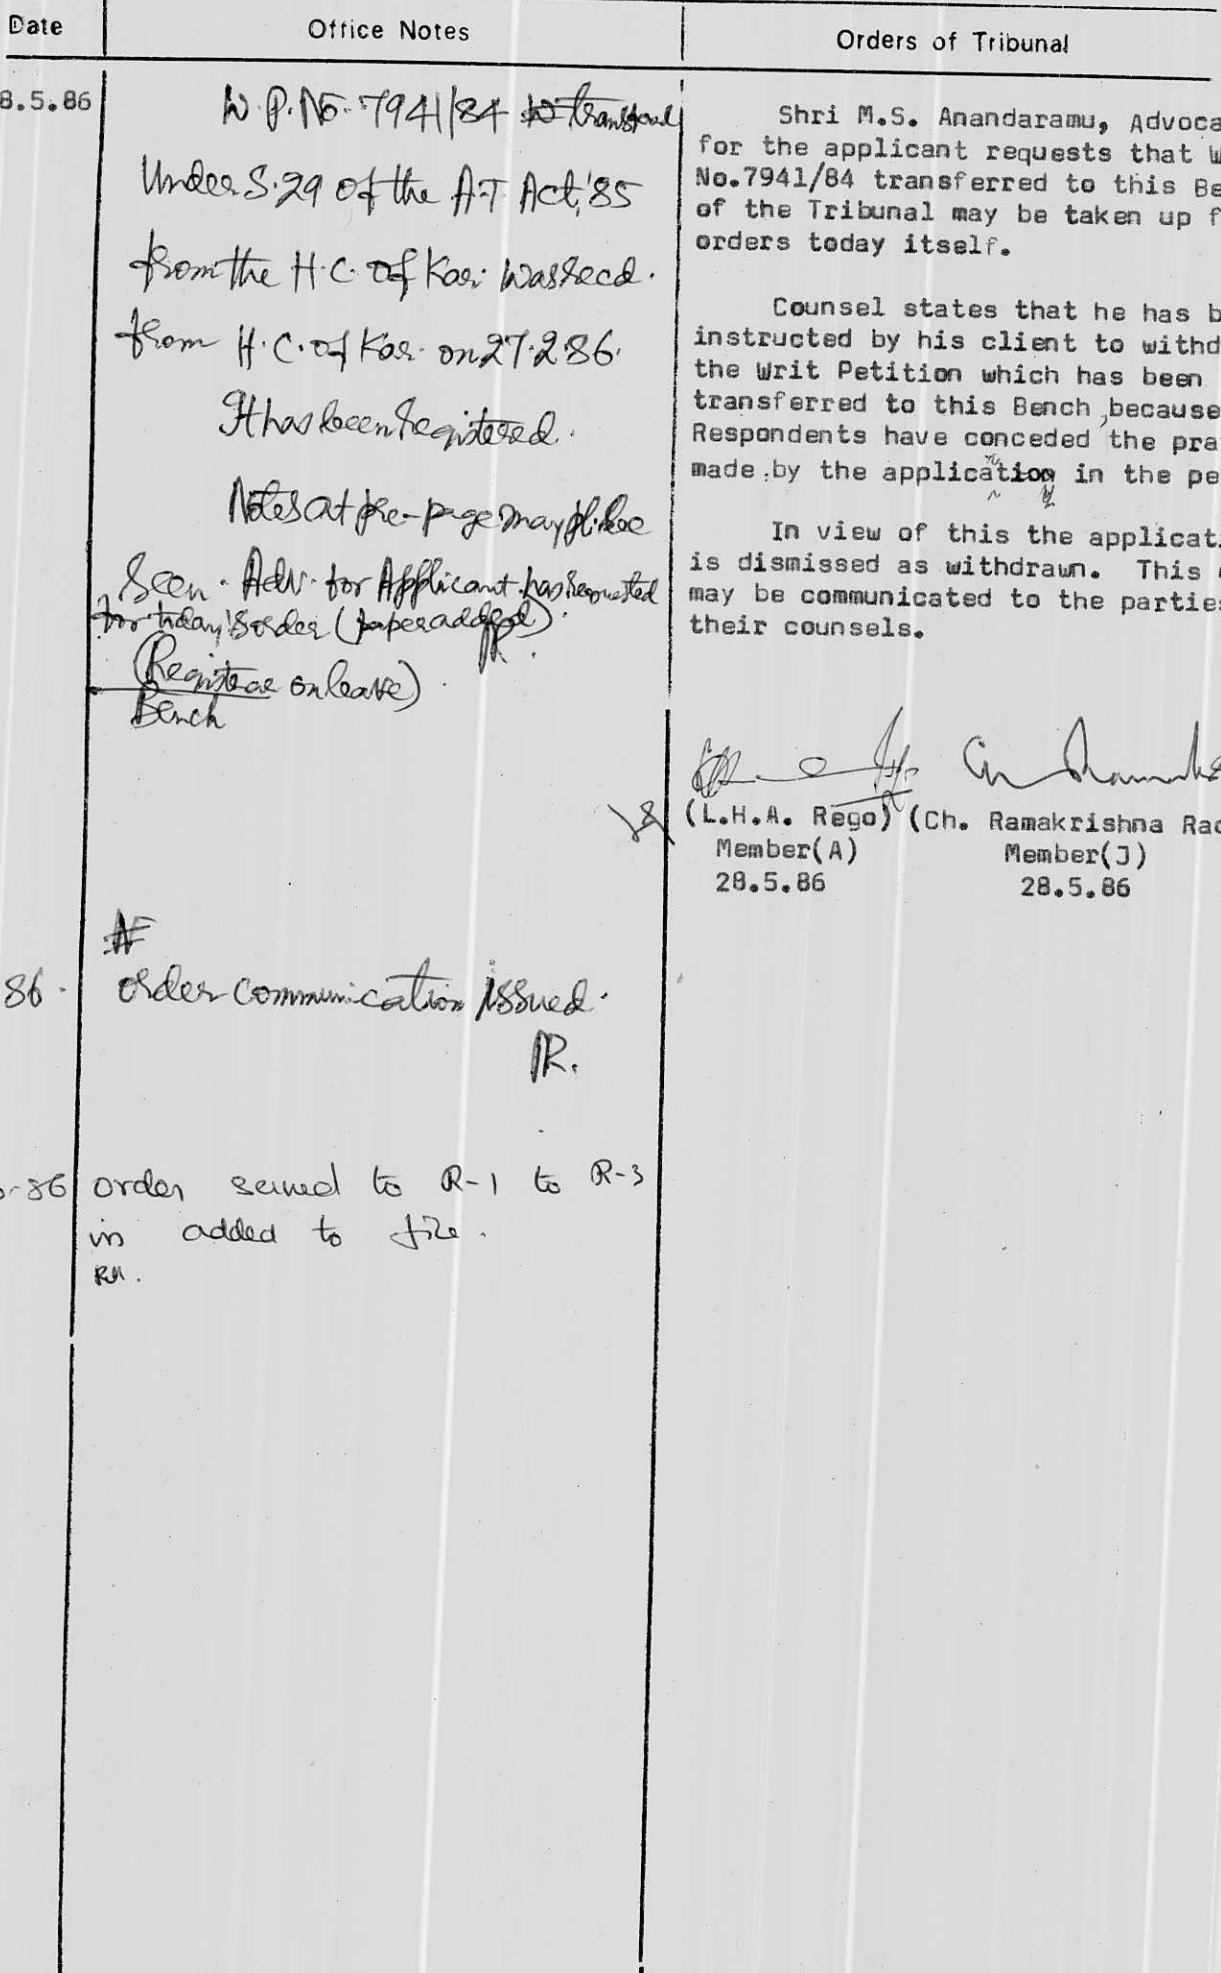 Date
Office Notes
Orders of Tribunal
8.5.86
W.P.No. 7941/84 transferred
Under S.29 of the A.T Act,'85
from the H.C. of Kar. was recd.
from H.C. of Kar. on 27.2.86.
It has been registered.
Notes at pre-page may pl. be
seen. Adv. for Applicant has requested
for today's order (paper added).
(Registrar on leave)
Bench
86.
order communication issued.
-86
order served to R-1 to R-3
is added to file.
Shri M.S. Anandaramu, Advoca
for the applicant requests that W
No.7941/84 transferred to this Be
of the Tribunal may be taken up f
orders today itself.
Counsel states that he has b
instructed by his client to withd
the Writ Petition which has been
transferred to this Bench, because
Respondents have conceded the pra
made by the application in the pe
In view of this the applicat
is dismissed as withdrawn. This
may be communicated to the parties
their counsels.
(L.H.A. Rego) (Ch. Ramakrishna Rao
Member(A) Member(J)
28.5.86 28.5.86